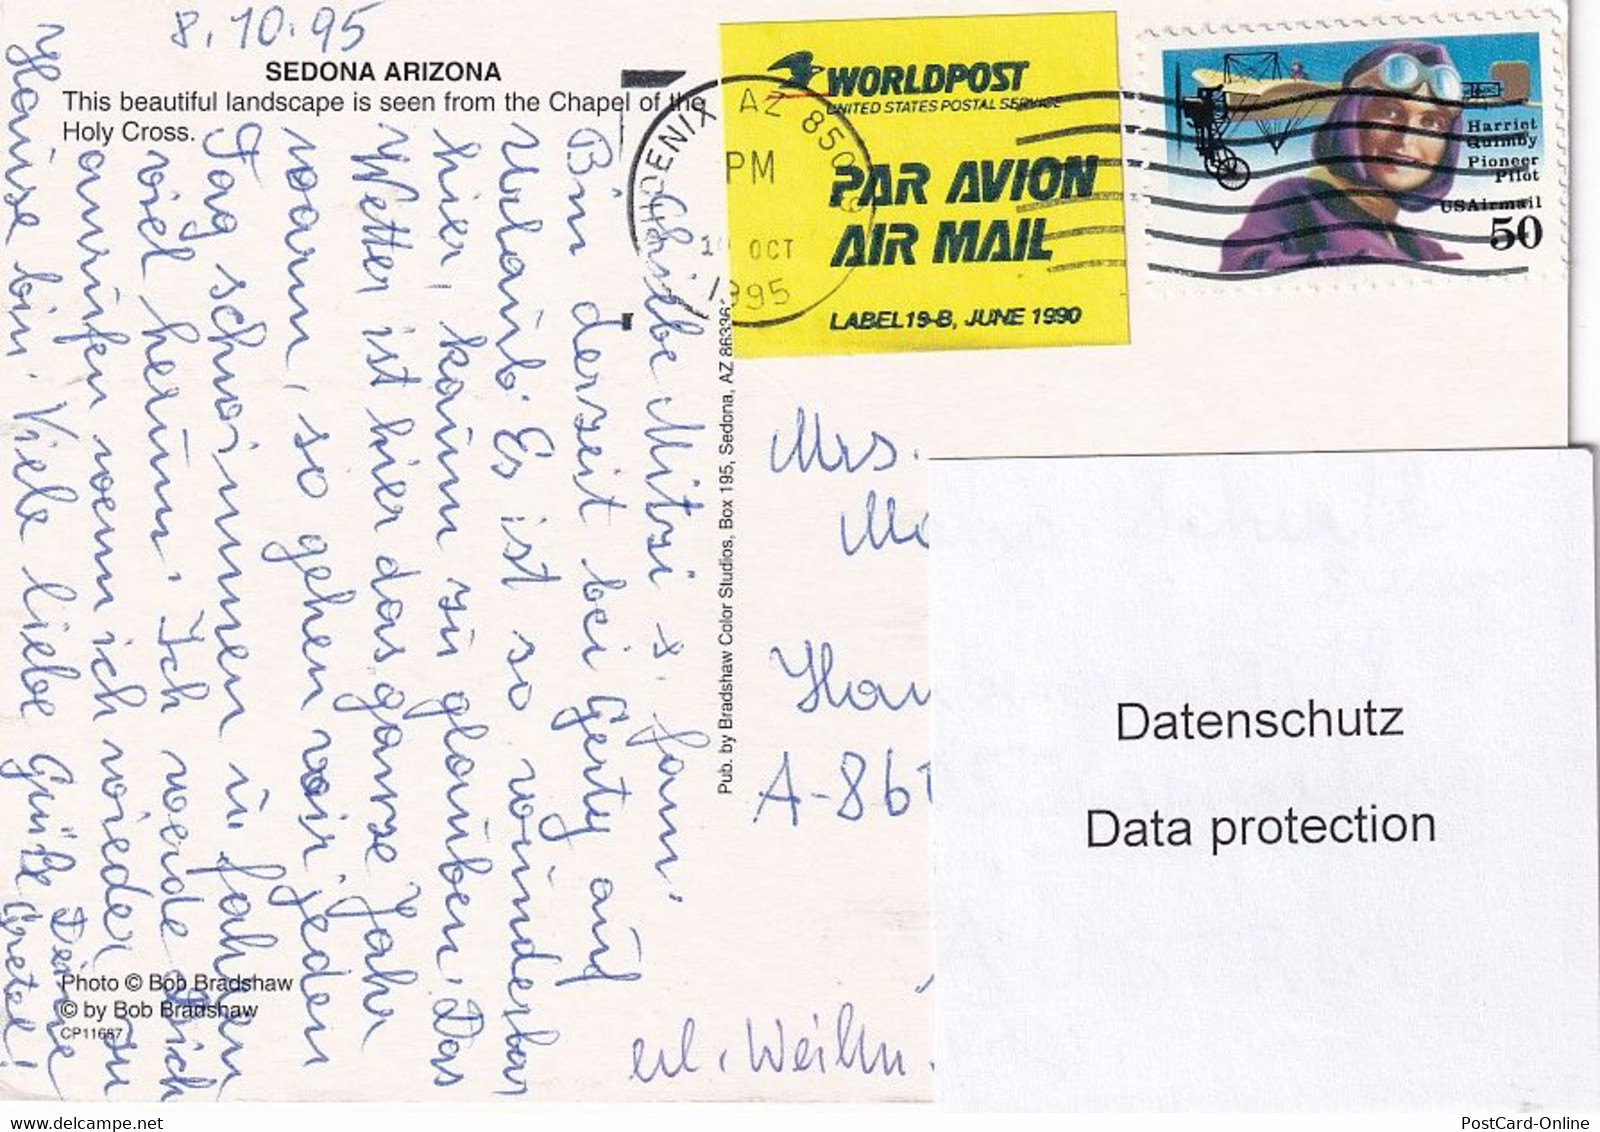 8.10.95
SEDONA ARIZONA
This beautiful landscape is seen from the Chapel of the
Holy Cross.
Liebe Mitzi + Fam.
Bin derzeit bei Gerty auf
Urlaub. Es ist so wunderbar
hier, kaum zu glauben. Das
Wetter ist hier das ganze Jahr
warm, so gehen wir jeden
Tag schwimmen u. fahren
viel herum. Ich werde Dich
anrufen wenn ich wieder zu
Hause bin. Viele liebe Grüße
Deine
Gretel!
Photo © Bob Bradshaw
© by Bob Bradshaw
CP11687
Pub. by Bradshaw Color Studios, Box 195, Sedona, AZ 86336
PHOENIX AZ 850
PM
OCT
1995
WORLDPOST
UNITED STATES POSTAL SERVICE
PAR AVION
AIR MAIL
LABEL 19-B, JUNE 1990
Harriet
Quimby
Pioneer
Pilot
USAirmail
50
Mrs.
A-861
Datenschutz
Data protection
www.delcampe.net
PostCard-Online